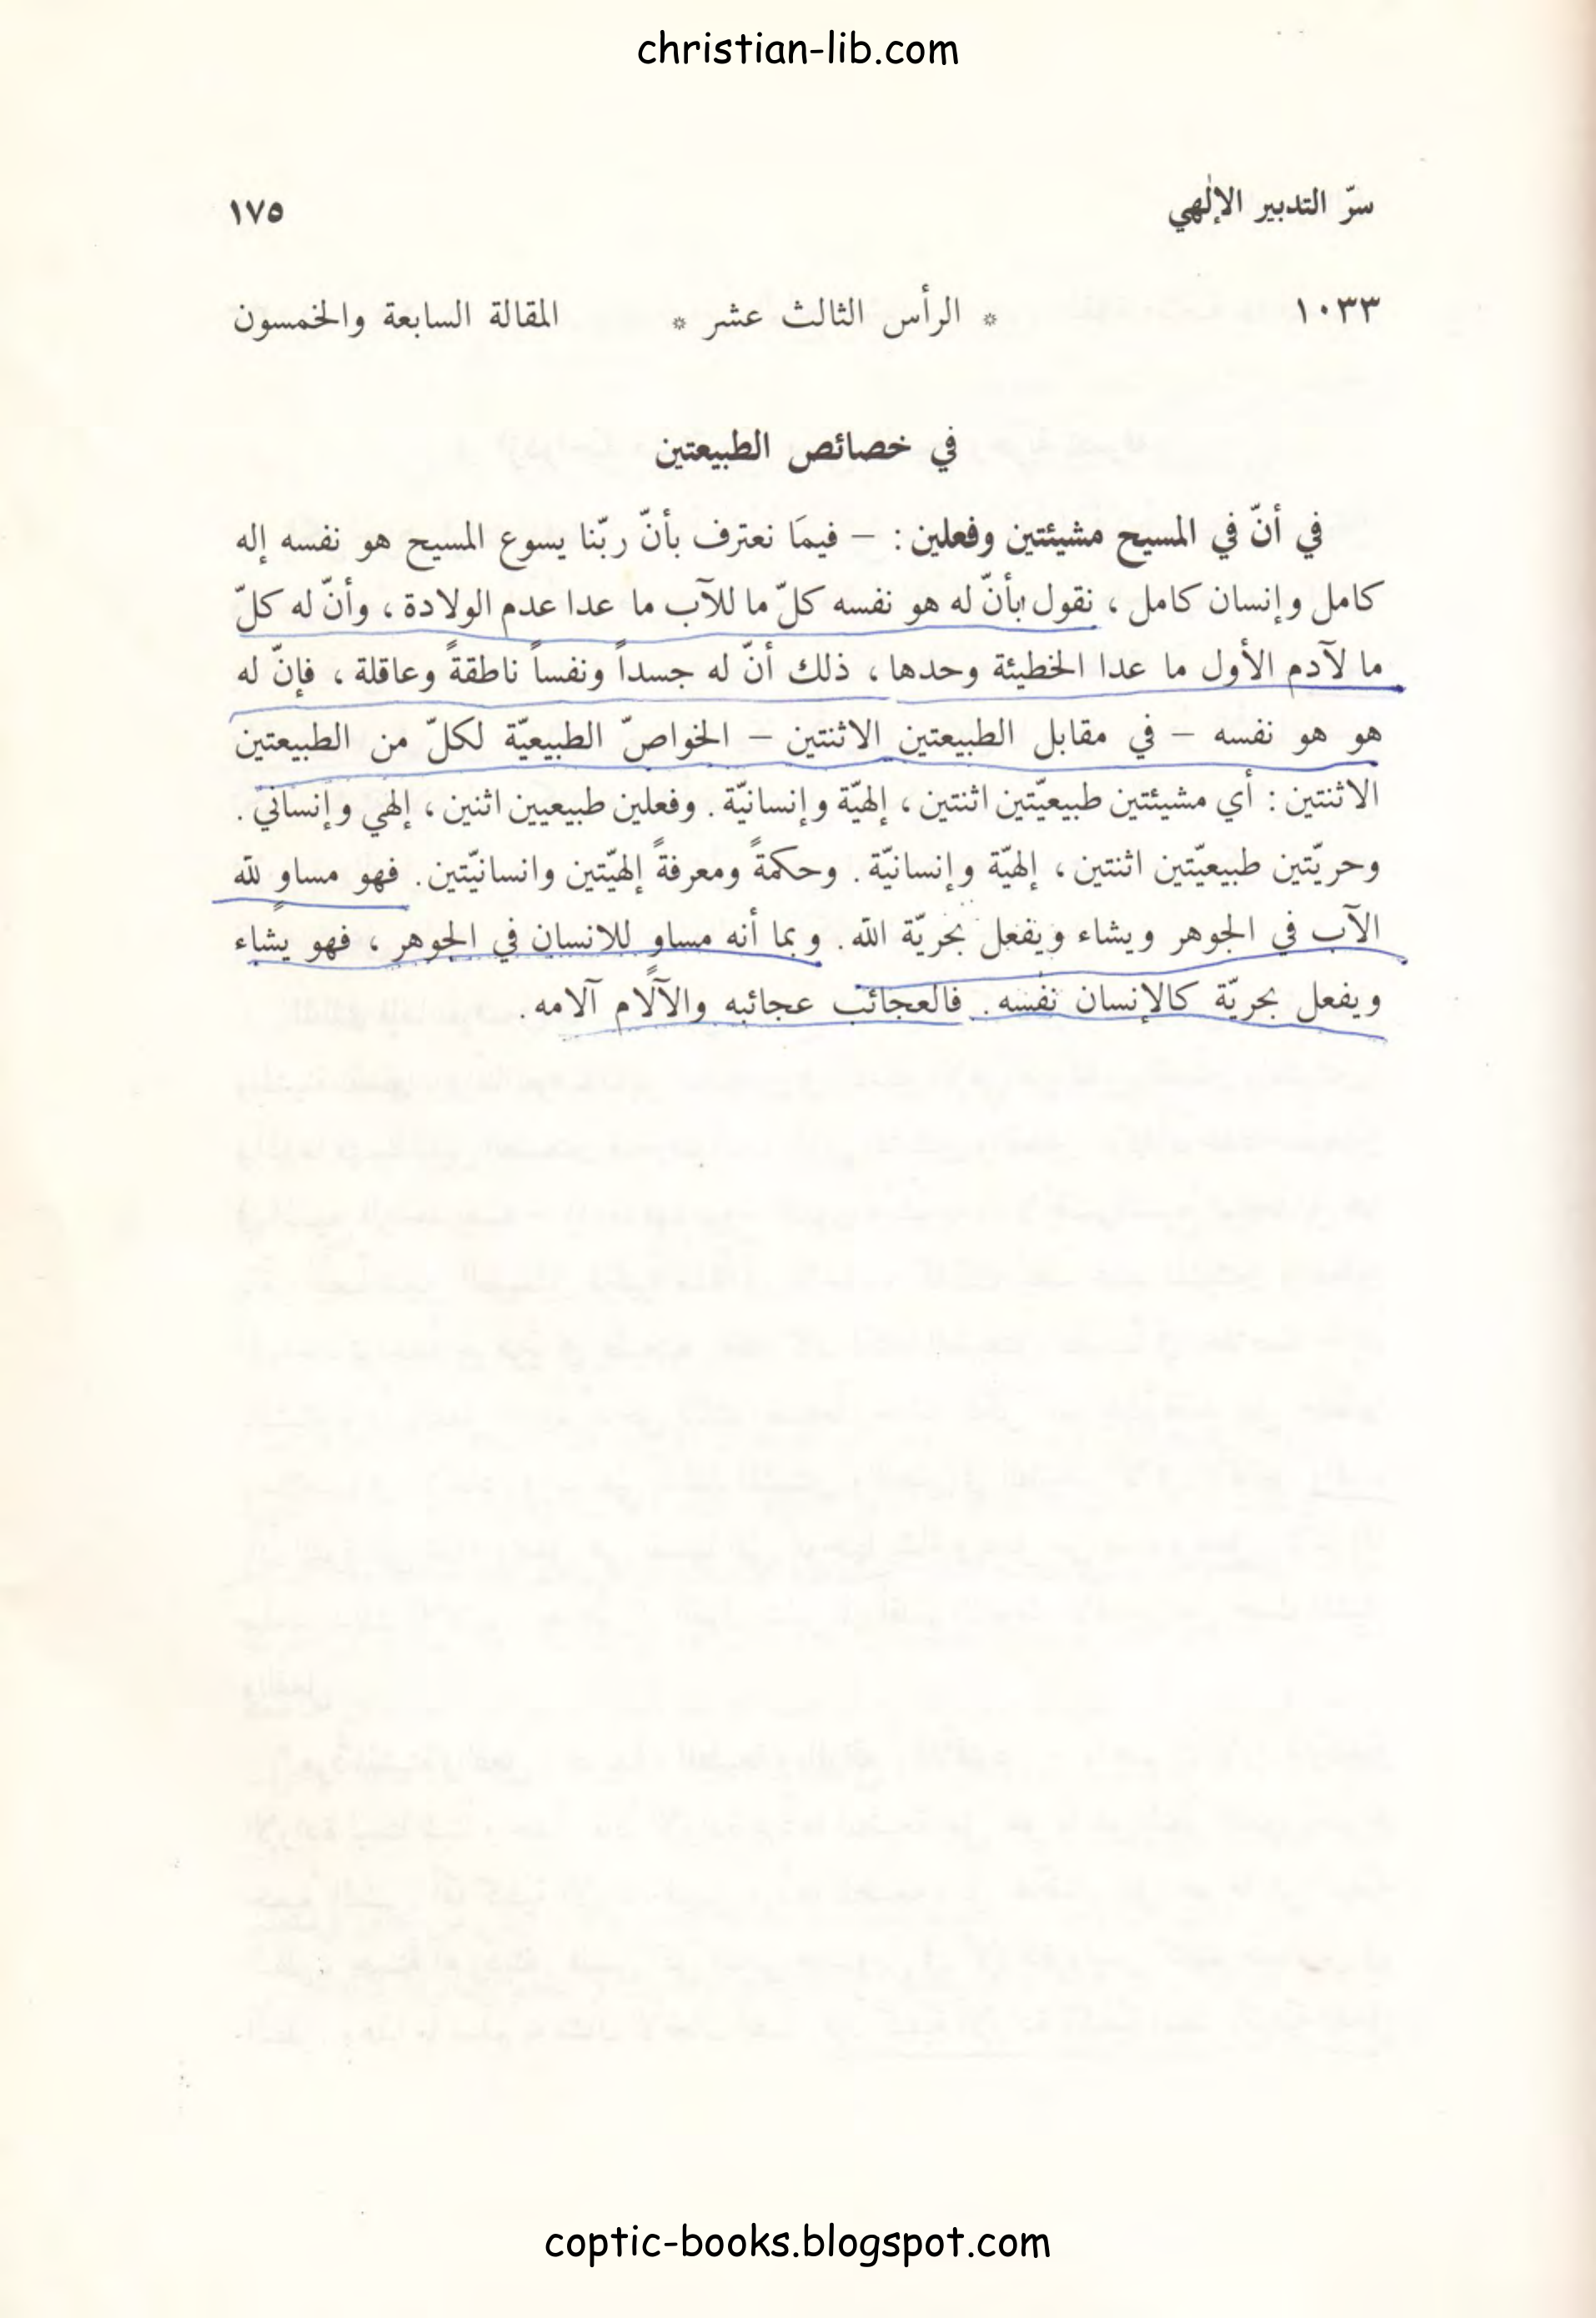 christian-lib.com
سرّ التدبير الإلهي ١٧٥
١٠٣٣ * الرأس الثالث عشر * المقالة السابعة والخمسون
في خصائص الطبيعتين
في أنّ في المسيح مشيئتين وفعلين : – فيمَا نعترف بأنّ ربّنا يسوع المسيح هو نفسه إله
كامل وإنسان كامل ، نقول بأنّ له هو نفسه كلّ ما للآب ما عدا عدم الولادة ، وأنّ له كلّ
ما لآدم الأول ما عدا الخطيئة وحدها ، ذلك أنّ له جسداً ونفساً ناطقةً وعاقلة ، فإنّ له
هو هو نفسه – في مقابل الطبيعتين الاثنتين – الخواصّ الطبيعيّة لكلّ من الطبيعتين
الاثنتين : أي مشيئتين طبيعيّتين اثنتين ، إلهيّة وإنسانيّة . وفعلين طبيعيين اثنين ، إلهي وإنساني .
وحريّتين طبيعيّتين اثنتين ، إلهيّة وإنسانيّة . وحكمةً ومعرفةً إلهيّتين وانسانيّتين . فهو مساوٍ لله
الآب في الجوهر ويشاء ويفعل بحريّة الله . وبما أنه مساوٍ للانسان في الجوهر ، فهو يشاء
ويفعل بحريّة كالإنسان نفسه . فالعجائب عجائبه والآلام آلامه .
coptic-books.blogspot.com